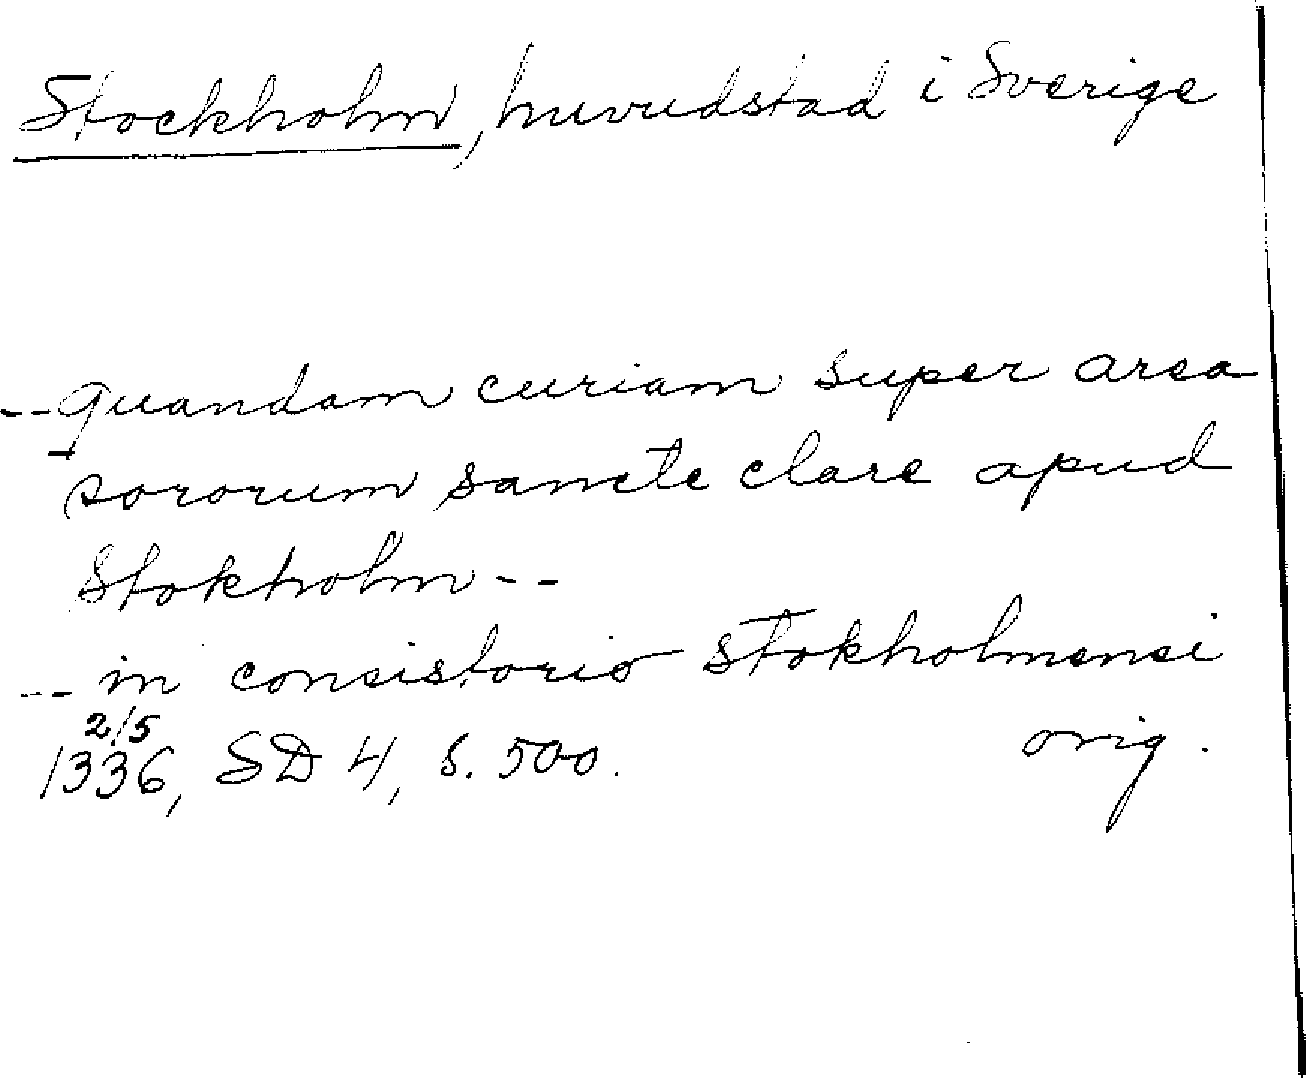 Stockholm, huvudstad i Sverige
-- quandam curiam super area
sororum sancte clare apud
Stokholm --
-- in consistorio stokholmensi
2/5
1336, SD 4, s. 500. orig.